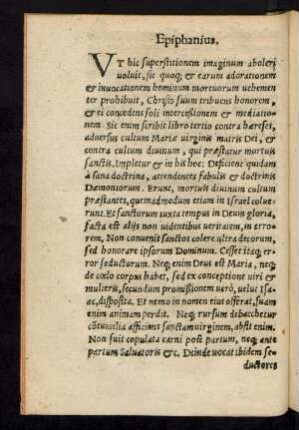 Epiphanius.
VT hic superstitionem imaginum aboleri
uoluit, sic quoq; & earum adorationem
& inuocationem hominum mortuorum uehemen
ter prohibuit, Christo suum tribuens honorem,
& ei concedens soli intercessionem & mediatio-
nem. Sic enim scribit libro tertio contra hæreses,
aduersus cultum Mariæ uirginis matris Dei, &
contra cultum diuinum, qui præstatur mortuis
sanctis. Impletur & in his hoc: Deficient quidam
à sana doctrina, attendentes fabulis & doctrinis
Dæmoniorum. Erunt, mortuis diuinum cultum
præstantes, quemadmodum etiam in Israel colue-
runt. Et sanctorum iuxta tempus in Deum gloria,
facta est alijs non uidentibus ueritatem, in erro-
rem. Non conuenit sanctos colere ultra decorum,
sed honorare ipsorum Dominum. Cesset itaq; er-
ror seductorum. Neq; enim Deus est Maria, neq;
de cœlo corpus habet, sed ex conceptione uiri &
mulieris, secundum promissionem uerò, uelut Isa-
ac, disposita. Et nemo in nomen eius offerat, suam
enim animam perdit. Neq; rursum debacchetur
cōtumelia afficiens sanctam uirginem, absit enim.
Non fuit copulata carni post partum, neq; ante
partum Saluatoris &c. Deinde uocat ibidem se-
ductores